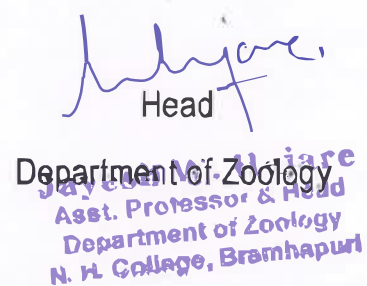 Head
Department of Zoology
Jayesh
Asst. Professor & Head
Department of Zoology
N. H. College, Bramhapuri